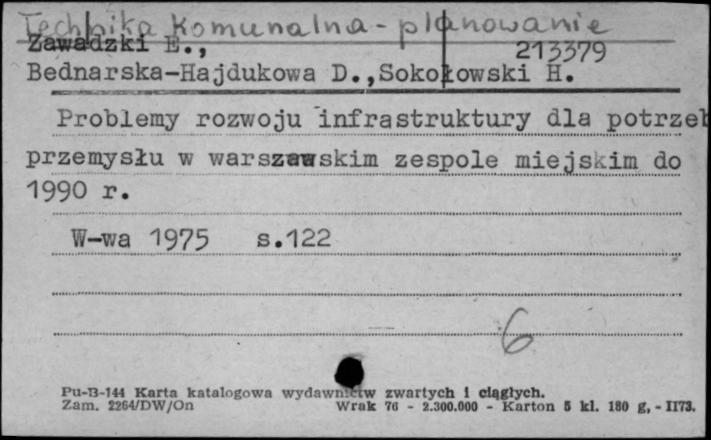 Technika Komunalna - planowanie
Zawadzki E.,
213379
Bednarska-Hajdukowa D.,Sokołowski H.
Problemy rozwoju infrastruktury dla potrzeb
przemysłu w warszawskim zespole miejskim do
1990 r.
W-wa 1975 s.122
6
Pu-B-144 Karta katalogowa wydawnictw zwartych i ciągłych.
Zam. 2264/DW/On Wrak 76 - 2.300.000 - Karton 5 kl. 180 g, - II73.